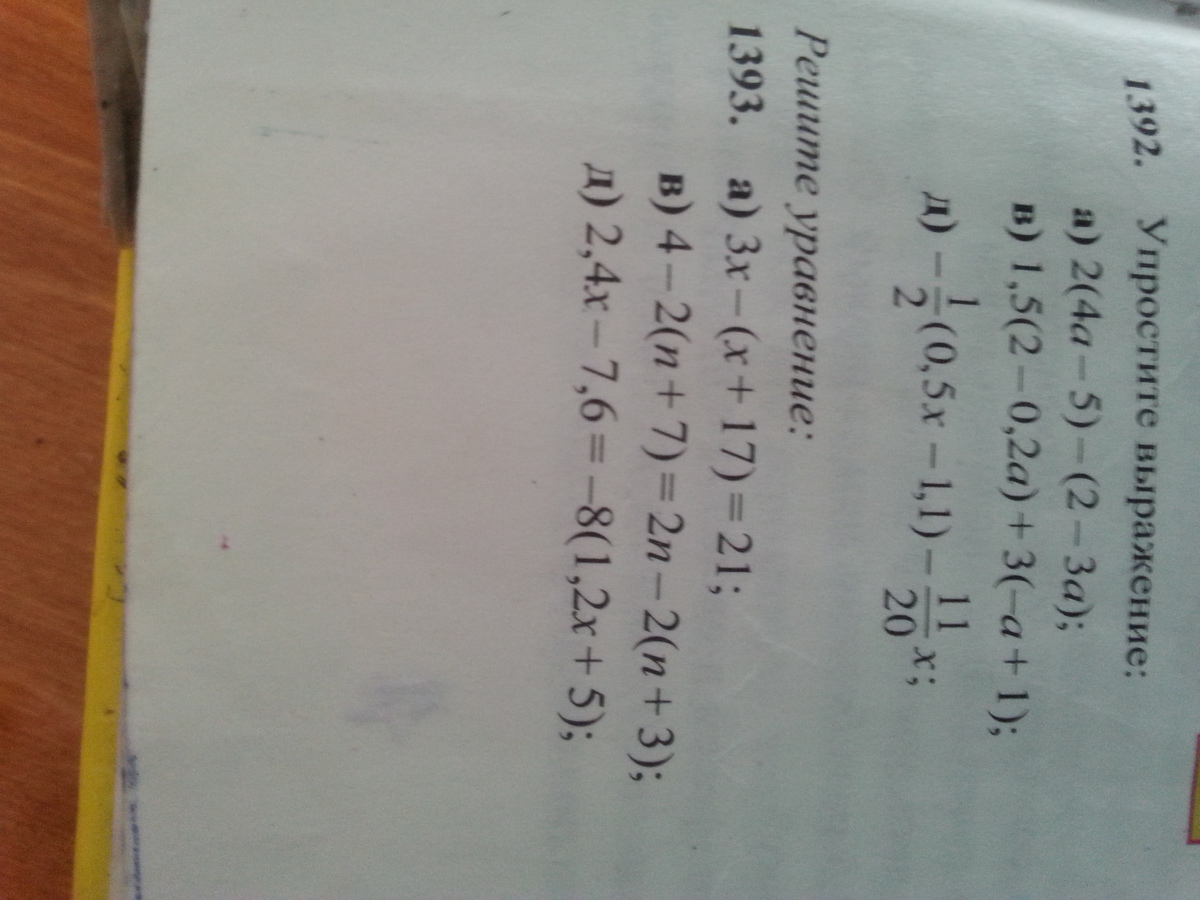 1392. Упростите выражение:
а) 2(4a – 5) – (2 – 3a);
в) 1,5(2 – 0,2a) + 3(–a + 1);
д) –1/2(0,5x – 1,1) – 11/20x;
Решите уравнение:
1393. а) 3x – (x + 17) = 21;
в) 4 – 2(n + 7) = 2n – 2(n + 3);
д) 2,4x – 7,6 = –8(1,2x + 5);